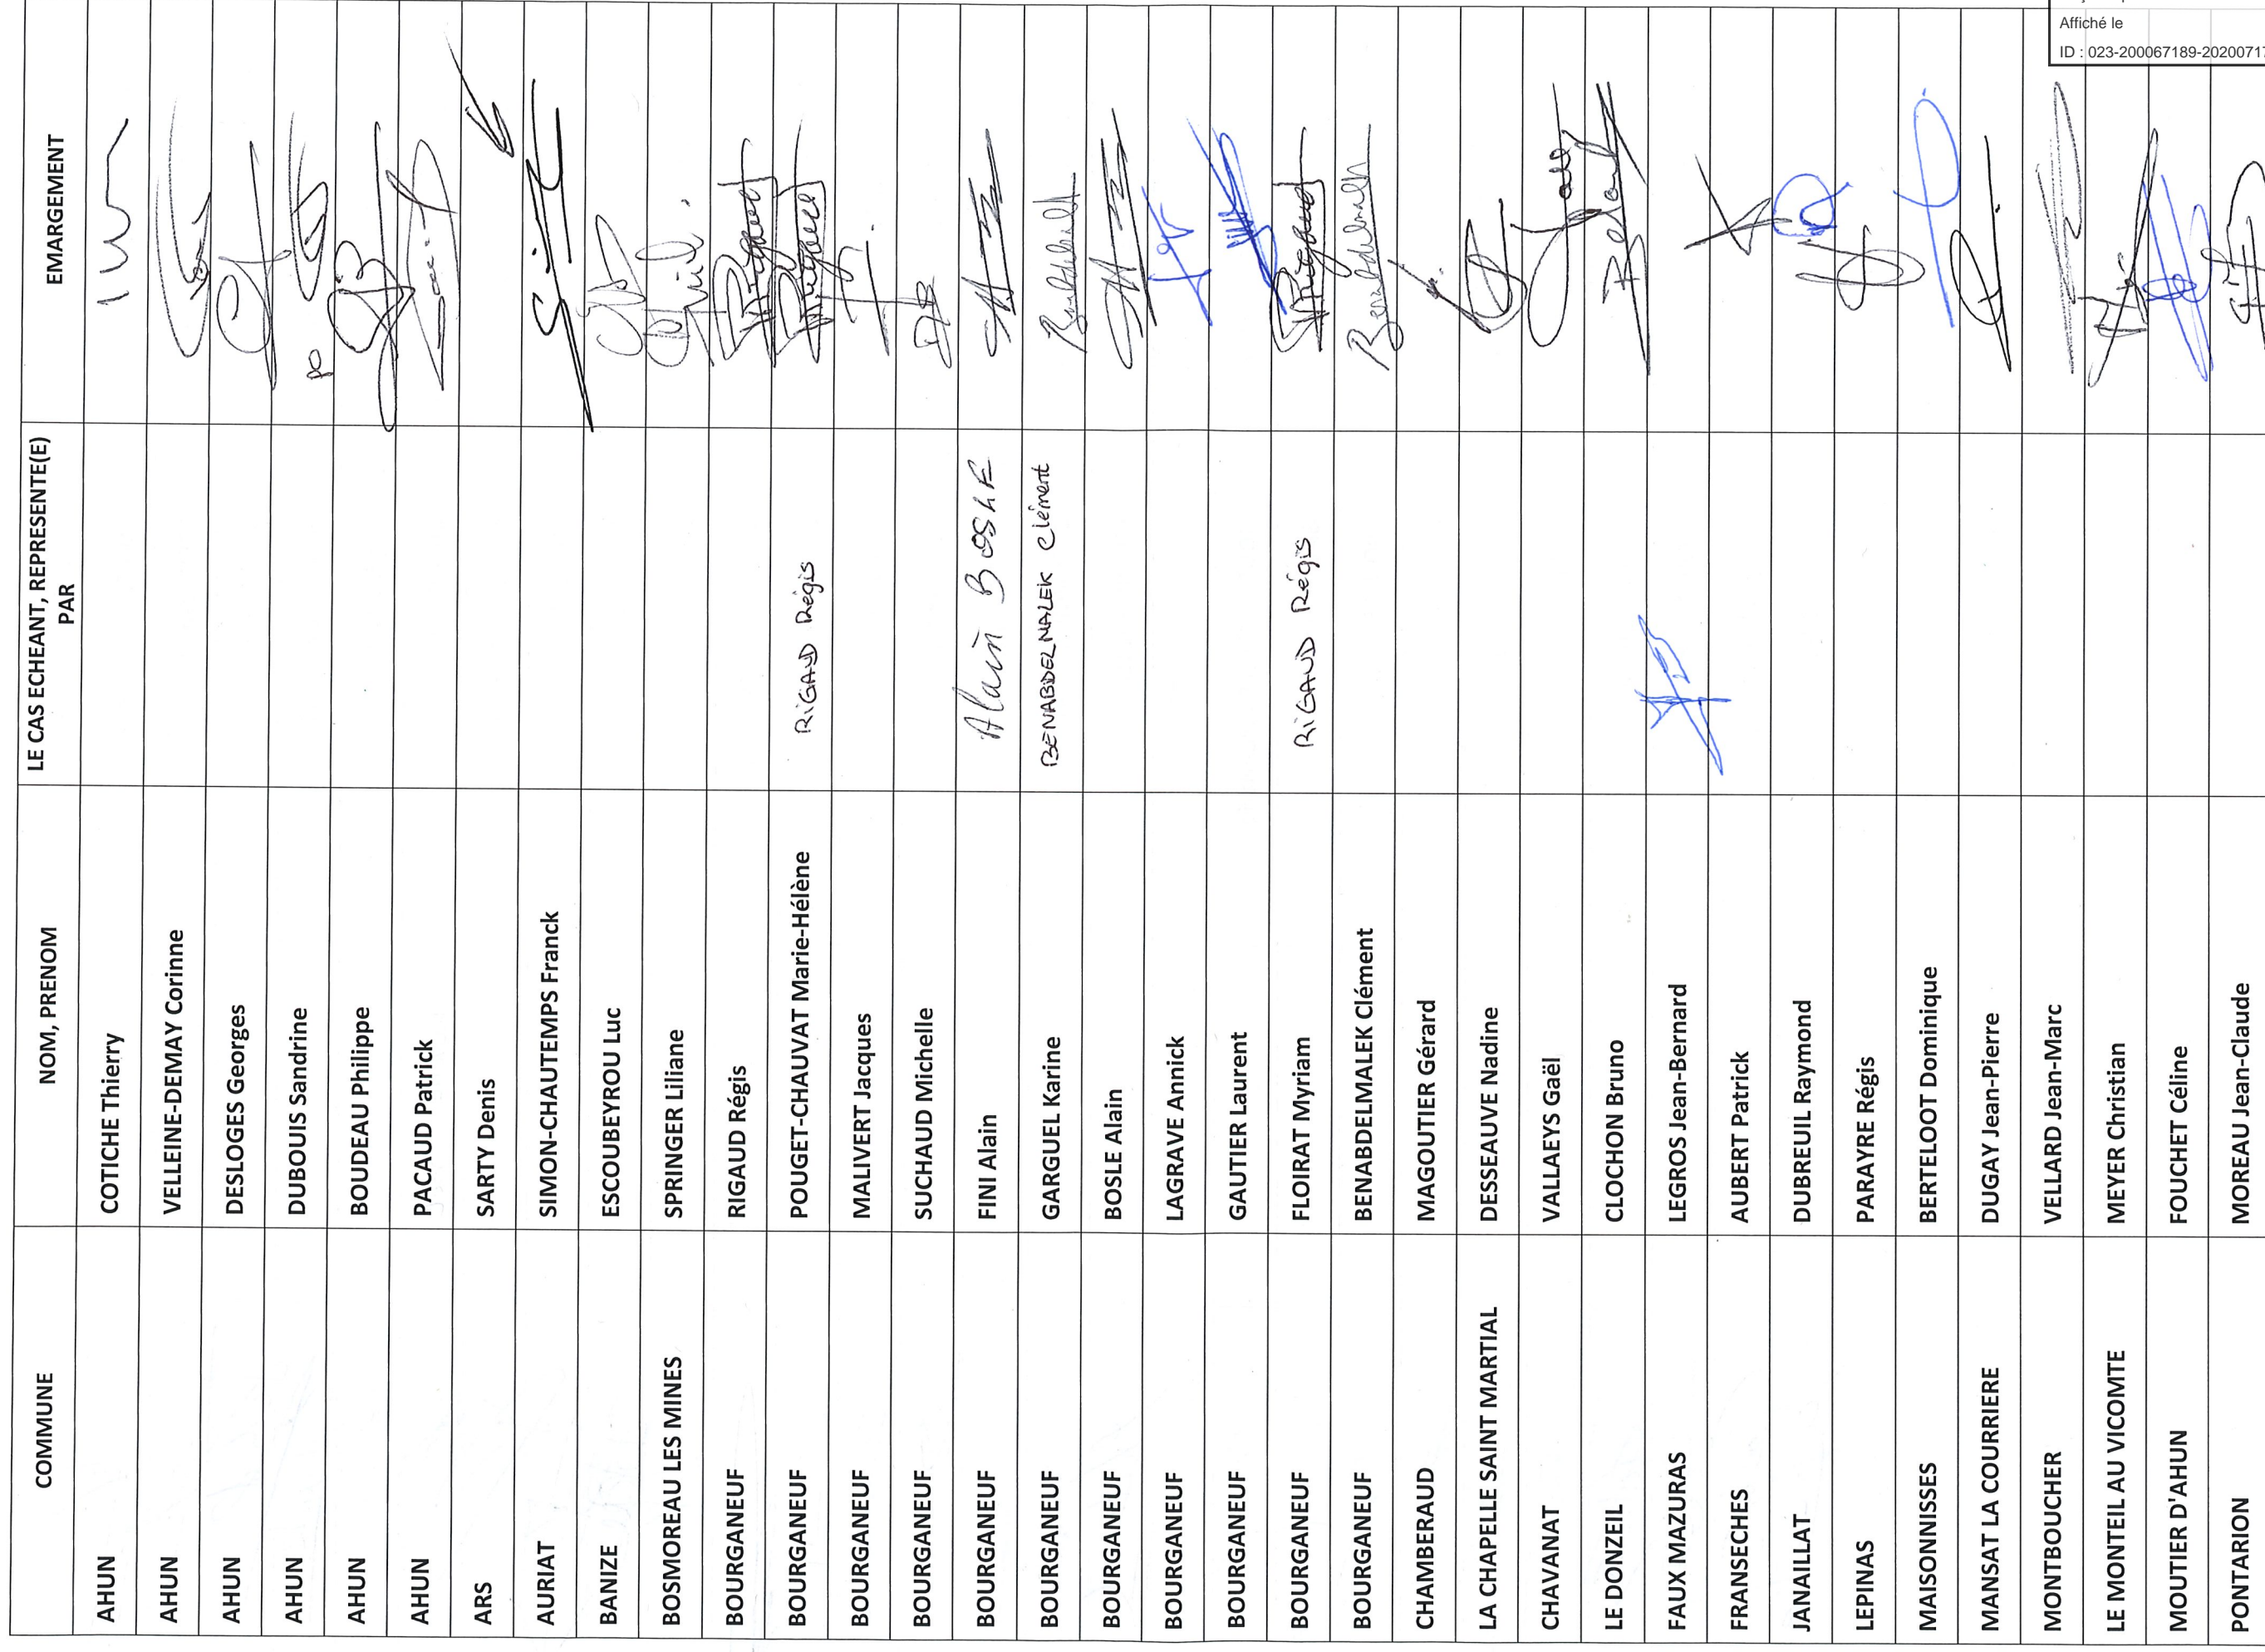 Affiché le
ID : 023-200067189-20200717
COMMUNE NOM, PRENOM LE CAS ECHEANT, REPRESENTE(E) PAR EMARGEMENT
AHUN COTICHE Thierry
AHUN VELLEINE-DEMAY Corinne
AHUN DESLOGES Georges
AHUN DUBOUIS Sandrine PO
AHUN BOUDEAU Philippe
AHUN PACAUD Patrick
ARS SARTY Denis
AURIAT SIMON-CHAUTEMPS Franck
BANIZE ESCOUBEYROU Luc
BOSMOREAU LES MINES SPRINGER Liliane
BOURGANEUF RIGAUD Régis Rigaud
BOURGANEUF POUGET-CHAUVAT Marie-Hélène RIGAUD Régis Rigaud
BOURGANEUF MALIVERT Jacques
BOURGANEUF SUCHAUD Michelle
BOURGANEUF FINI Alain Alain BOSLE
BOURGANEUF GARGUEL Karine BENABDELMALEK Clément
BOURGANEUF BOSLE Alain
BOURGANEUF LAGRAVE Annick
BOURGANEUF GAUTIER Laurent
BOURGANEUF FLOIRAT Myriam RIGAUD Régis Rigaud
BOURGANEUF BENABDELMALEK Clément
CHAMBERAUD MAGOUTIER Gérard
LA CHAPELLE SAINT MARTIAL DESSEAUVE Nadine
CHAVANAT VALLAEYS Gaël
LE DONZEIL CLOCHON Bruno
FAUX MAZURAS LEGROS Jean-Bernard
FRANSECHES AUBERT Patrick
JANAILLAT DUBREUIL Raymond
LEPINAS PARAYRE Régis
MAISONNISSES BERTELOOT Dominique
MANSAT LA COURRIERE DUGAY Jean-Pierre
MONTBOUCHER VELLARD Jean-Marc
LE MONTEIL AU VICOMTE MEYER Christian
MOUTIER D'AHUN FOUCHET Céline
PONTARION MOREAU Jean-Claude